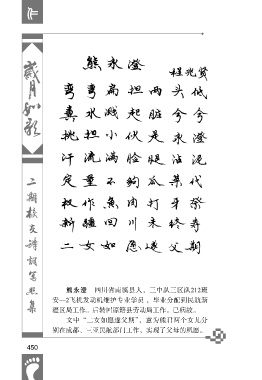 作
岁月如歌
二期校友诗词笔照集
熊永澄
程兆贤
弯弯扁担两头低
粪水溅起脏兮兮
挑担小伙是永澄
汗流满脸腿沾泥
定量不够瓜菜代
权作鱼肉打牙祭
新疆回川未终寿
二女如愿遂父期
熊永澄 四川省南溪县人，三中队三区队212班
安—2飞机发动机维护专业学员，毕业分配到民航新
疆区局工作。后转回原籍县劳动局工作。已病故。
文中“二女如愿遂父期”，意为熊君两个女儿分
别在成都、三亚民航部门工作，实现了父母的夙愿。
450